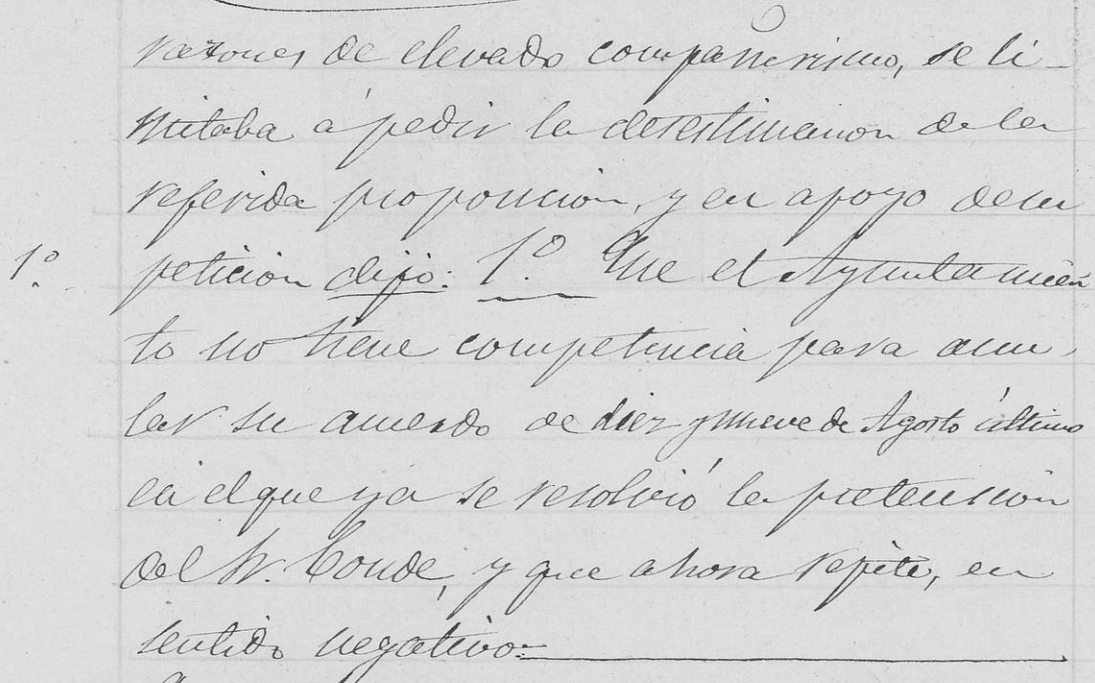 razones de elevado compañerismo, se li-
mitaba á pedir la desestimacion de la
referida proposicion, y en apoyo de su
1º. peticion dijo: 1º. Que el Ayuntamien
to no tiene competencia para anu-
lar su acuerdo de diez y nueve de Agosto último
en el que ya se resolvió la pretension
del Sr. Conde, y que ahora repite, en
sentido negativo=